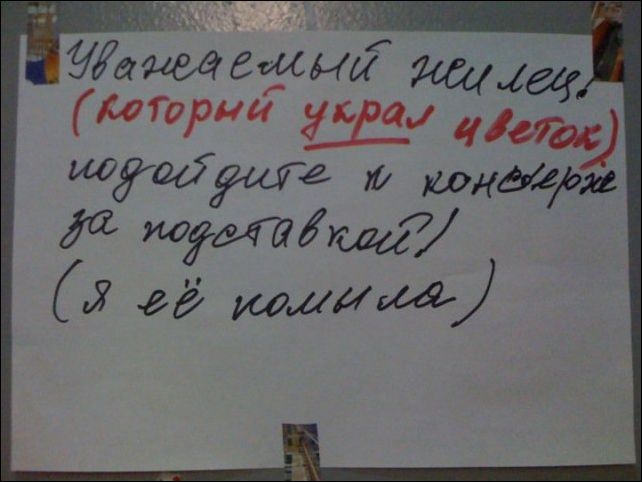 Уважаемый жилец!
(который украл цветок)
подойдите к консьерже
за подставкой!
(я её помыла)